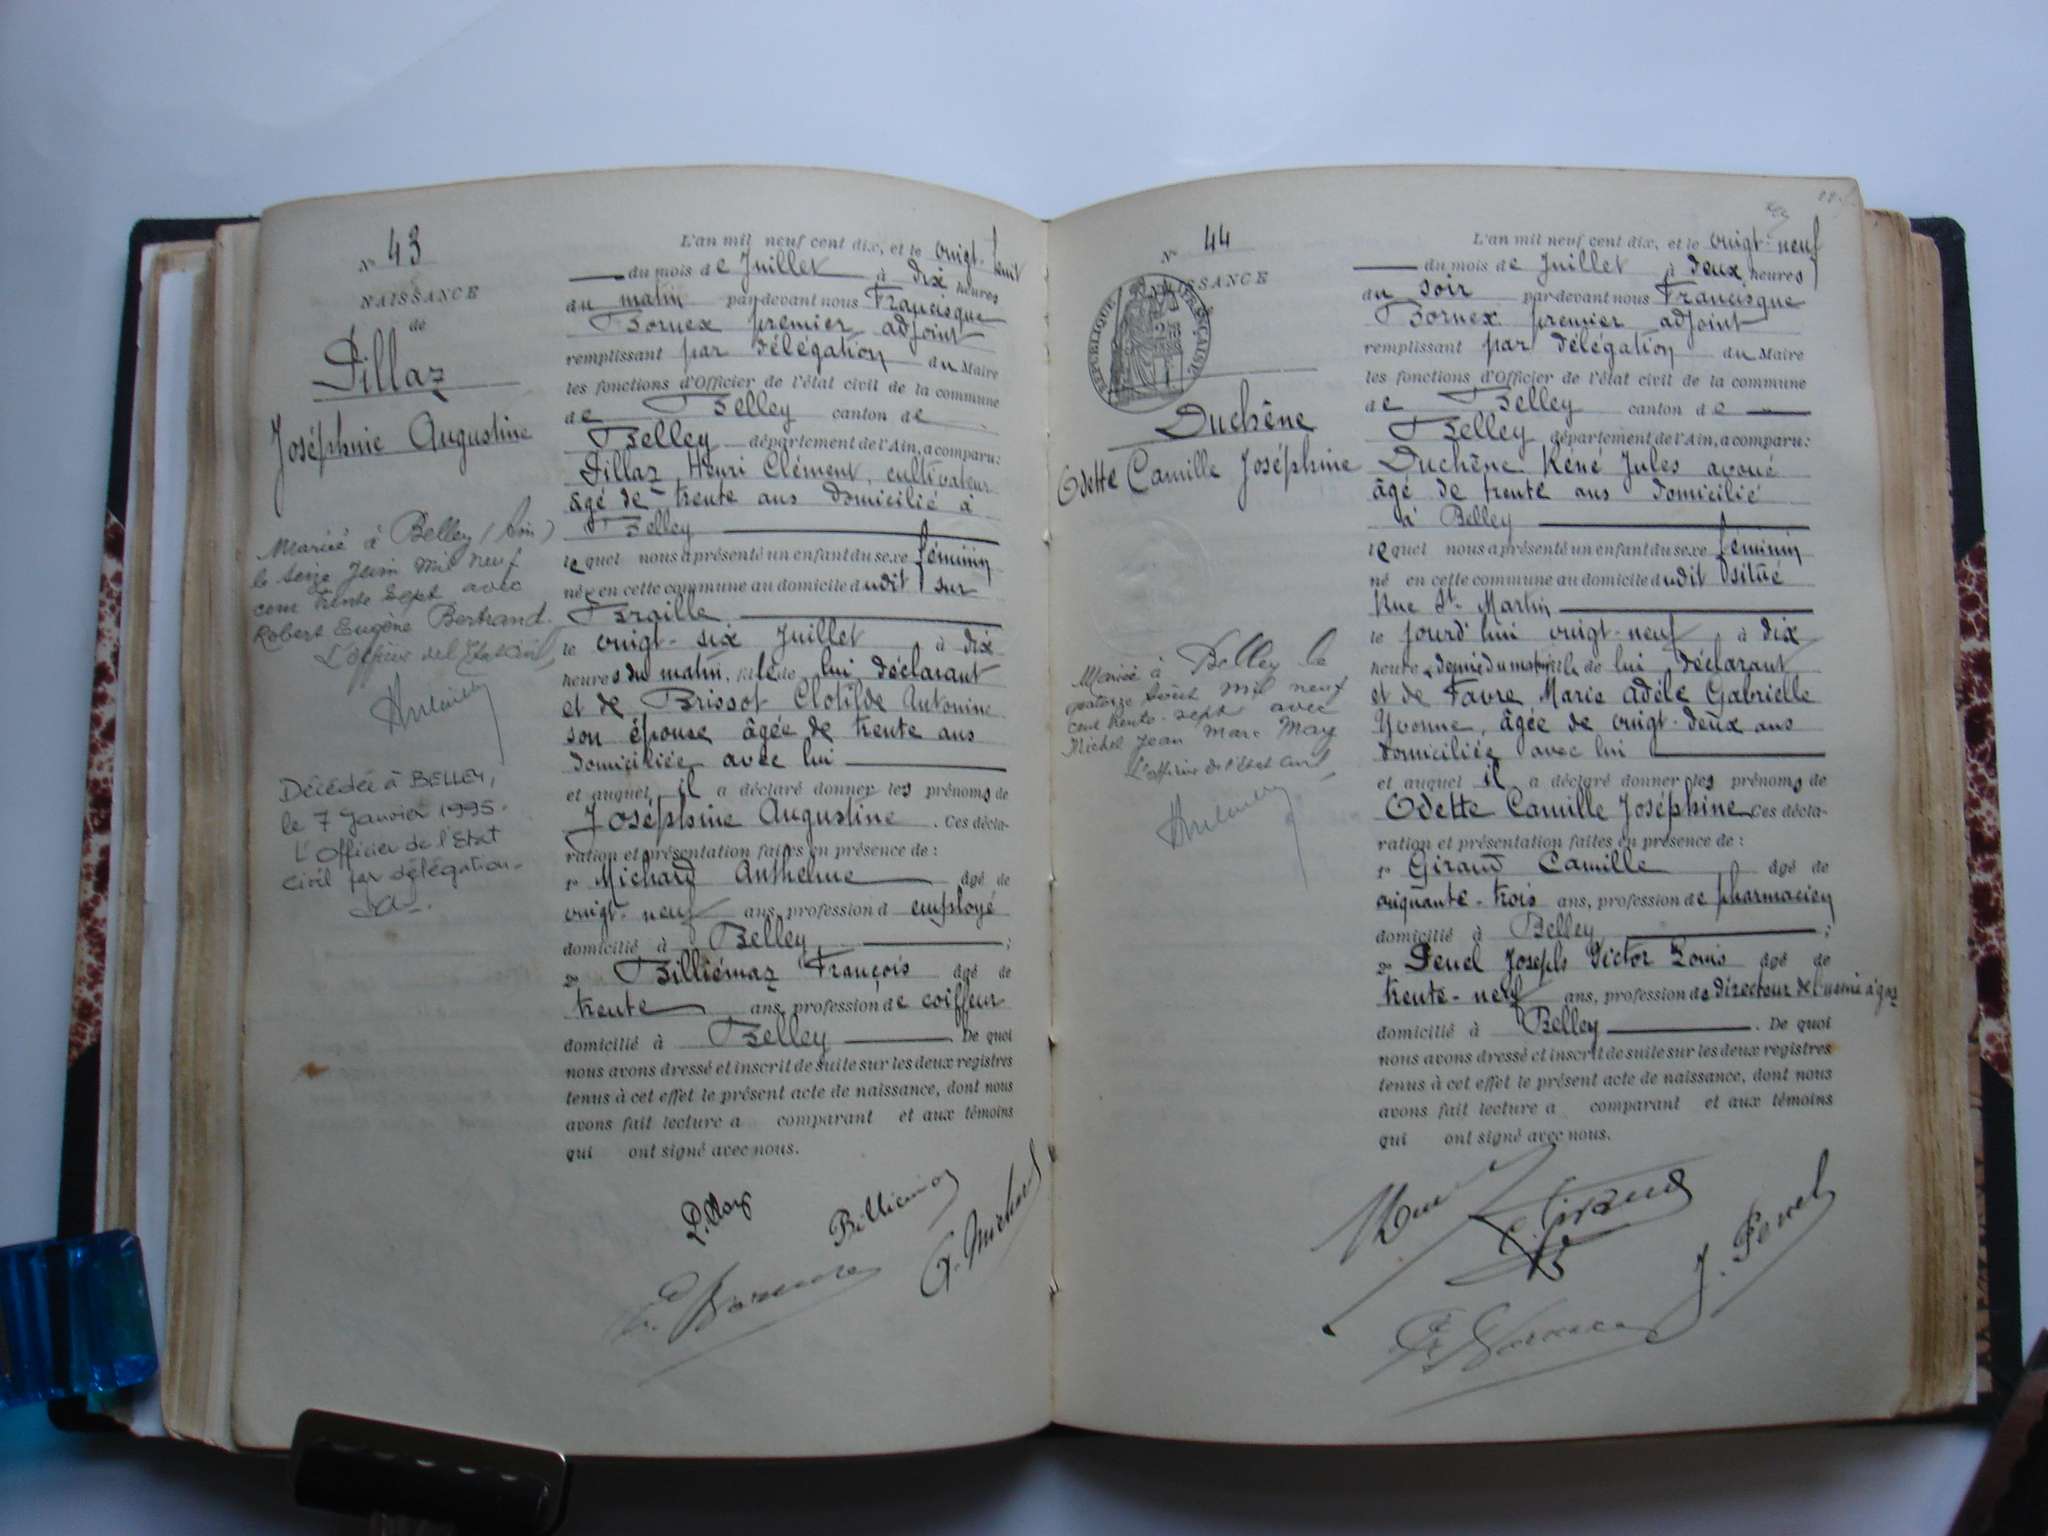 N° 43
NAISSANCE
de
Pillaz
Joséphine Augustine
Mariée à Belley (Ain)
le seize Juin mil neuf
cent trente sept avec
Robert Eugène Bertrand.
L'officier de l'Etat civil,
Décédée à BELLEY,
le 7 Janvier 1995.
L'Officier de l'Etat
civil par délégation.
L'an mil neuf cent dix, et le vingt-huit
du mois de Juillet à dix heures
du matin par-devant nous Francisque
Bornex premier adjoint
remplissant par délégation du Maire
les fonctions d'Officier de l'état civil de la commune
de Belley canton de
Belley département de l'Ain, a comparu:
Pillaz Henri Clément, cultivateur
âgé de trente ans domicilié à
Belley
lequel nous a présenté un enfant du sexe féminin
née en cette commune au domicile dudit sur
Braille
le vingt-six Juillet à dix
heures du matin, fille de lui déclarant
et de Brissot Clotilde Antonine
son épouse âgée de trente ans
domiciliée avec lui
et auquel il a déclaré donner les prénoms de
Joséphine Augustine. Ces décla-
ration et présentation faites en présence de :
1° Michard Anthelme âgé de
vingt-neuf ans, profession d employé
domicilié à Belley ;
2° Billiémaz François âgé de
trente ans, profession de coiffeur
domicilié à Belley. De quoi
nous avons dressé et inscrit de suite sur les deux registres
tenus à cet effet le présent acte de naissance, dont nous
avons fait lecture a comparant et aux témoins
qui ont signé avec nous.
Pillaz
Billiemaz
A. Michard
F. Bornex
N° 44
NAISSANCE
RÉPUBLIQUE FRANÇAISE
Duchêne
Odette Camille Joséphine
Mariée à Belley le
quatorze Août mil neuf
cent trente-sept avec
Michel Jean Marc May
L'officier de l'Etat civil,
L'an mil neuf cent dix, et le vingt-neuf
du mois de Juillet à deux heures
du soir par-devant nous Francisque
Bornex premier adjoint
remplissant par délégation du Maire
les fonctions d'Officier de l'état civil de la commune
de Belley canton de
Belley département de l'Ain, a comparu:
Duchêne Réné Jules avoué
âgé de trente ans domicilié
à Belley
lequel nous a présenté un enfant du sexe féminin
né en cette commune au domicile dudit situé
Rue St-Martin
le jourd'hui vingt-neuf à dix
heure demie du matin fille de lui déclarant
et de Favre Marie Adèle Gabrielle
Yvonne, âgée de vingt-deux ans
domiciliée avec lui
et auquel il a déclaré donner les prénoms de
Odette Camille Joséphine. Ces décla-
ration et présentation faites en présence de :
1° Giraud Camille âgé de
cinquante-trois ans, profession de pharmacien
domicilié à Belley ;
2° Penel Joseph Victor Louis âgé de
trente-neuf ans, profession de directeur de l'usine à gaz
domicilié à Belley. De quoi
nous avons dressé et inscrit de suite sur les deux registres
tenus à cet effet le présent acte de naissance, dont nous
avons fait lecture a comparant et aux témoins
qui ont signé avec nous.
C. Giraud
J. Penel
F. Bornex